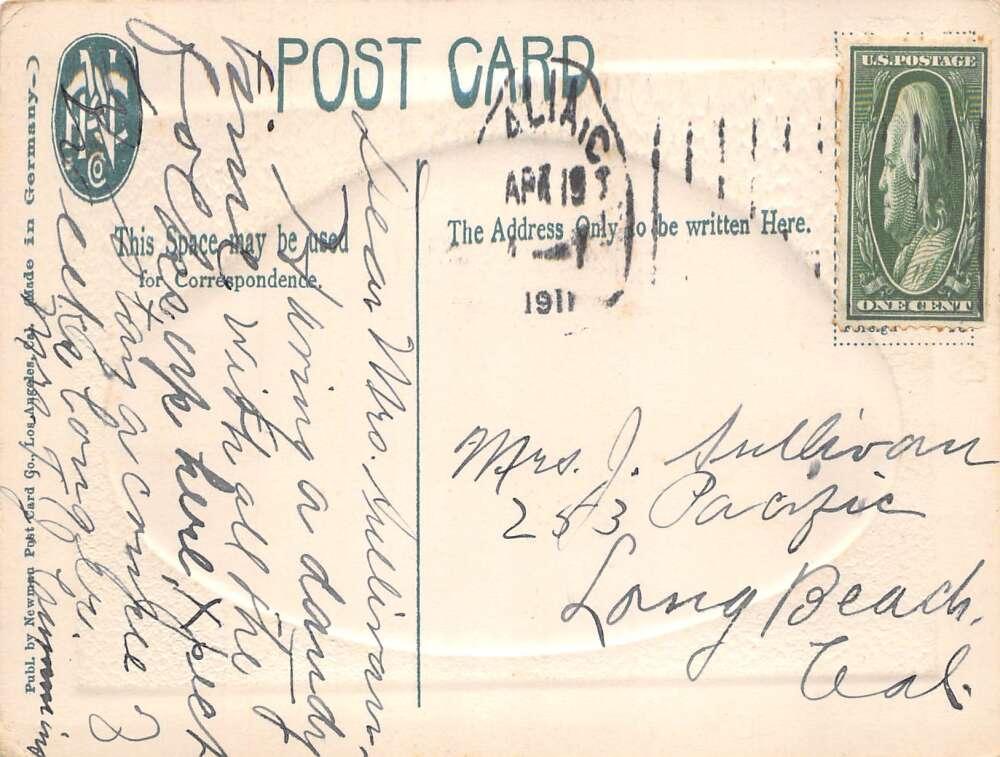 POST CARD
This Space may be used
for Correspondence.
The Address Only to be written Here.
Publ. by Newman Post Card Co., Los Angeles, Cal. Made in Germany.
U.S. POSTAGE
ONE CENT
ALIA, C
APR 19
1911
Dear Mrs. Sullivan,
Having a dandy
time with all the
Folks up here, Xpect
to stay a couple
weeks longer.
Mrs. J. Sullivan
253 Pacific
Long Beach,
Cal.